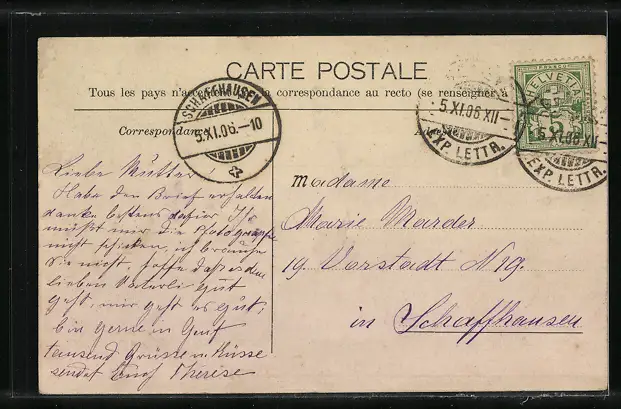 CARTE POSTALE
Tous les pays n'acceptent la correspondance au recto (se renseigner à
Correspondance
SCHAFFHAUSEN
5.XI.06.–10
5.XI.06 XII–
EXP. LETTR.
HELVETIA
FRANCO
5.XI.06 XII
EXP. LETTR.
Liebe Mutter!
Habe den Brief erhalten
danke bestens dafür Ihr
müsst mir die Photograpfie
nicht schicken, ich brauche
sie nicht, hoffe dass es dem
lieben Vaterli gut
geht, mir geht es gut,
bin gerne in Genf
tausend Grüsse u. Küsse
sendet Euch Therese
Madame
Marie Marder
19. Vorstadt N 19.
in Schaffhausen